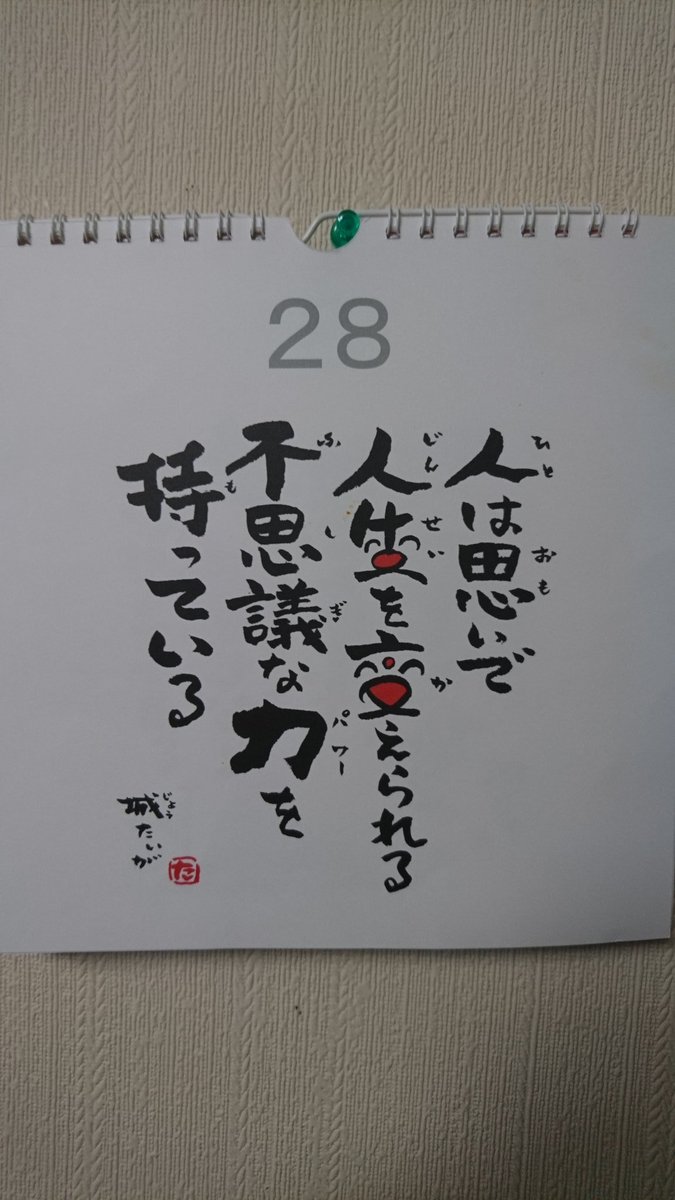 28
人は思いで
人生を変えられる
不思議な力を
持っている
ひと
おも
じんせい
か
ふしぎ
パワー
も
城たいが
じょう
た